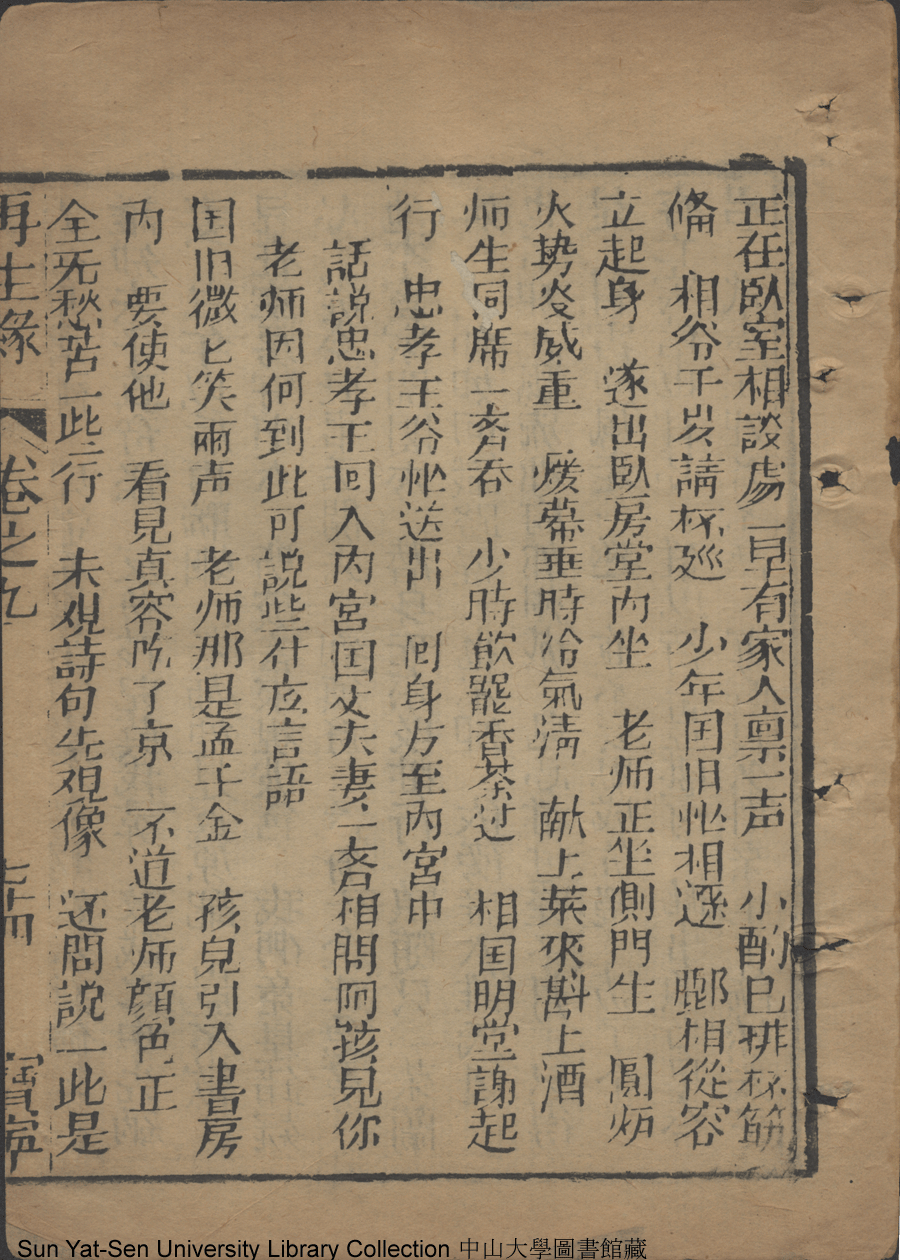 正在臥室相談處 一早有家人禀一声 小酌已排杯筯
俻 相爷千岁請杯廵 少年国旧忙相遜 酈相從容
立起身 遂出臥房堂内坐 老师正坐側門生 圓炉
火势炎威重 煖幕垂時冷氣清 献上菜來斟上酒
师生同席一斉吞 少時飲罷香茶过 相国明堂謝起
行 忠孝王爷忙送出 囘身方至内宮中
話説忠孝王囘入内宮国丈夫妻一斉相問阿孩兒你
老师因何到此可説些什庅言語
国旧微匕笑兩声 老师那是孟千金 孩兒引入書房
内 要使他 看見真容吃了京 不道老师顔色正
全无愁苦一此行 未观詩句先观像 还問説一此是
再生縁 卷之九 七十四 寳寧
Sun Yat-Sen University Library Collection 中山大學圖書館藏